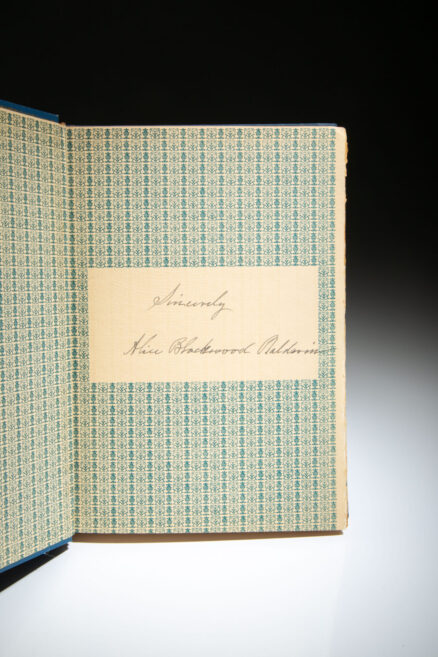 Sincerely
Alice Blackwood Baldwin